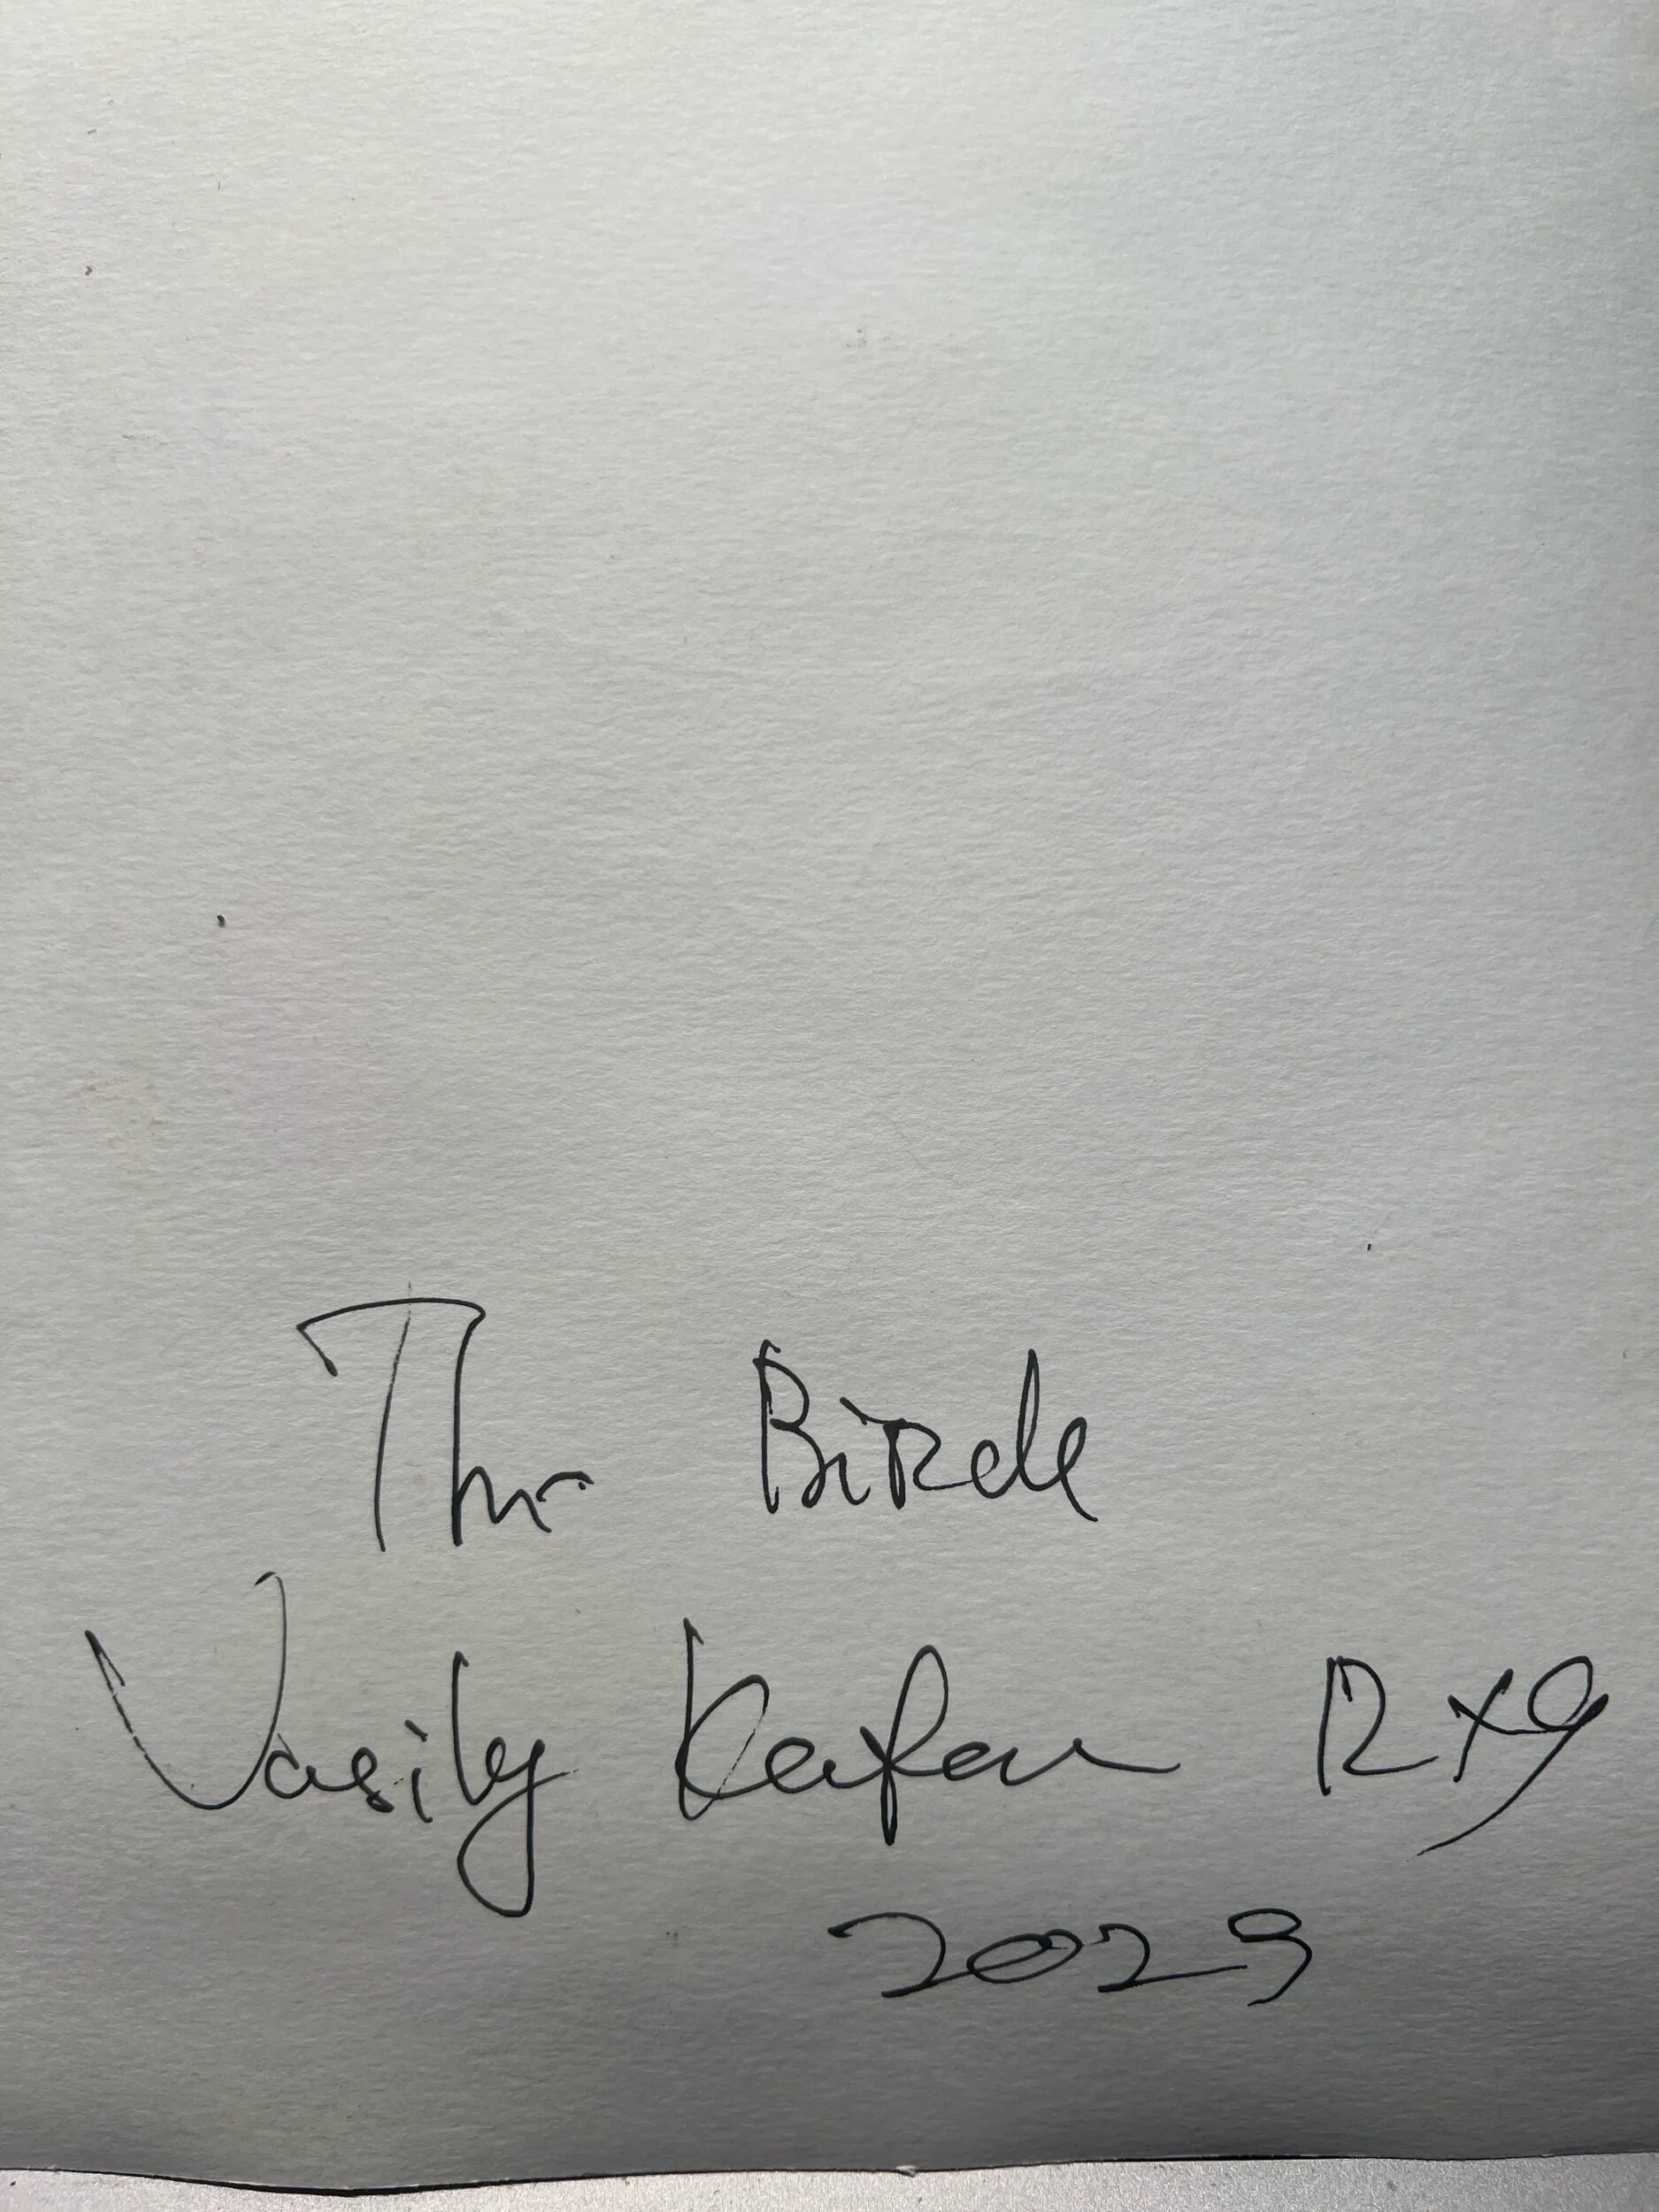 The Birds
Vasily Kafan 12x9
2023